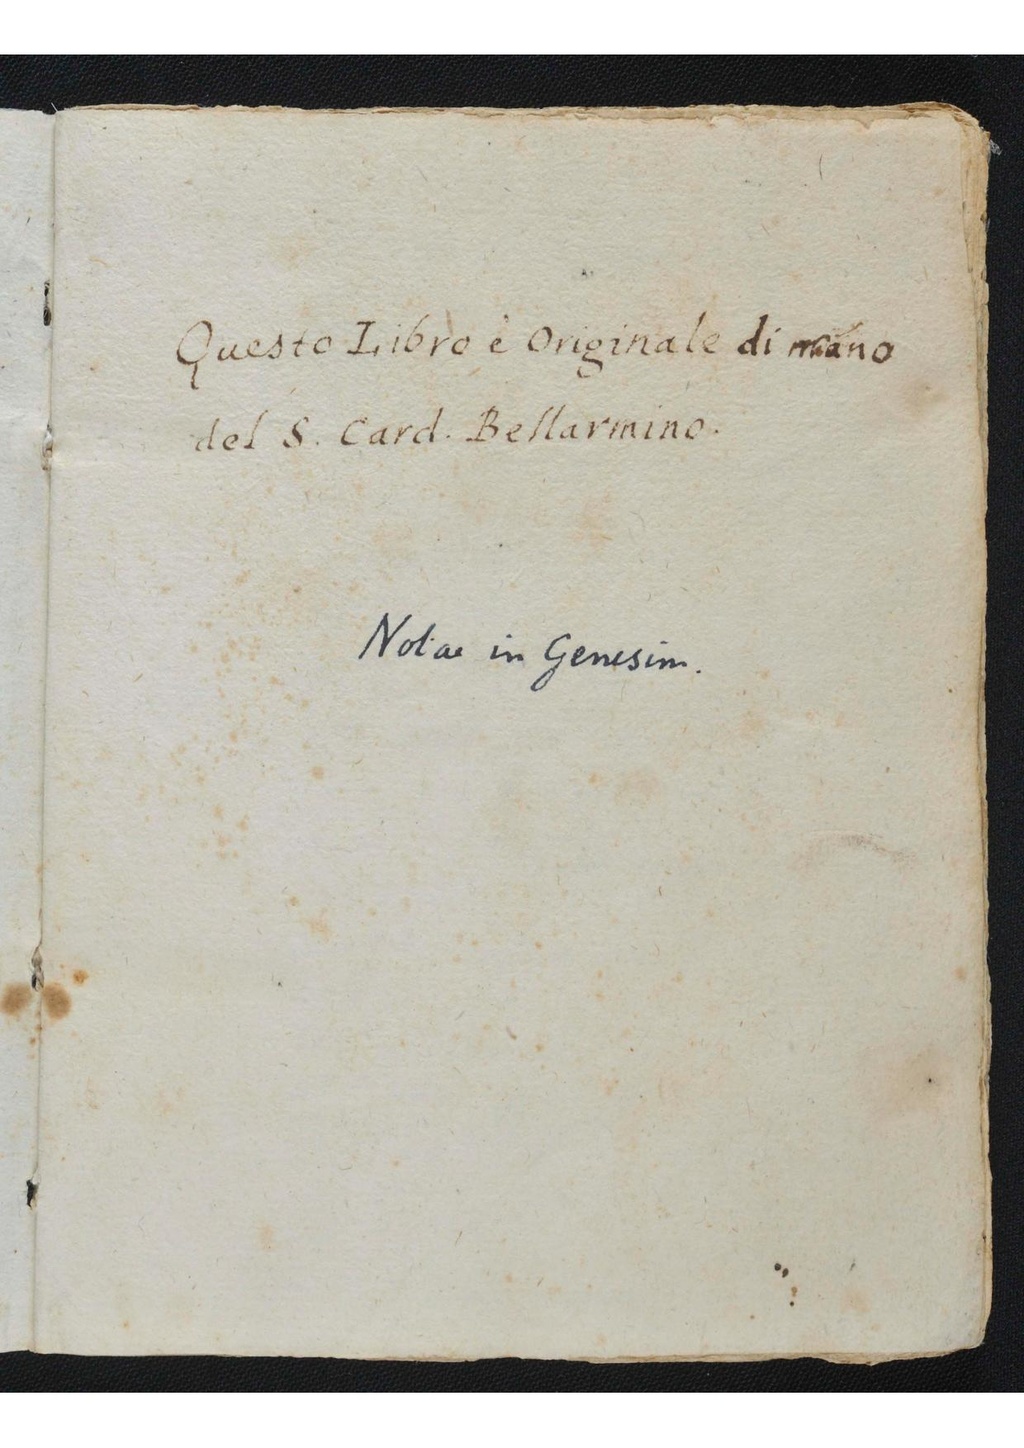 Questo Libro è Originale di mano
del S. Card. Bellarmino.
Notae in Genesim.